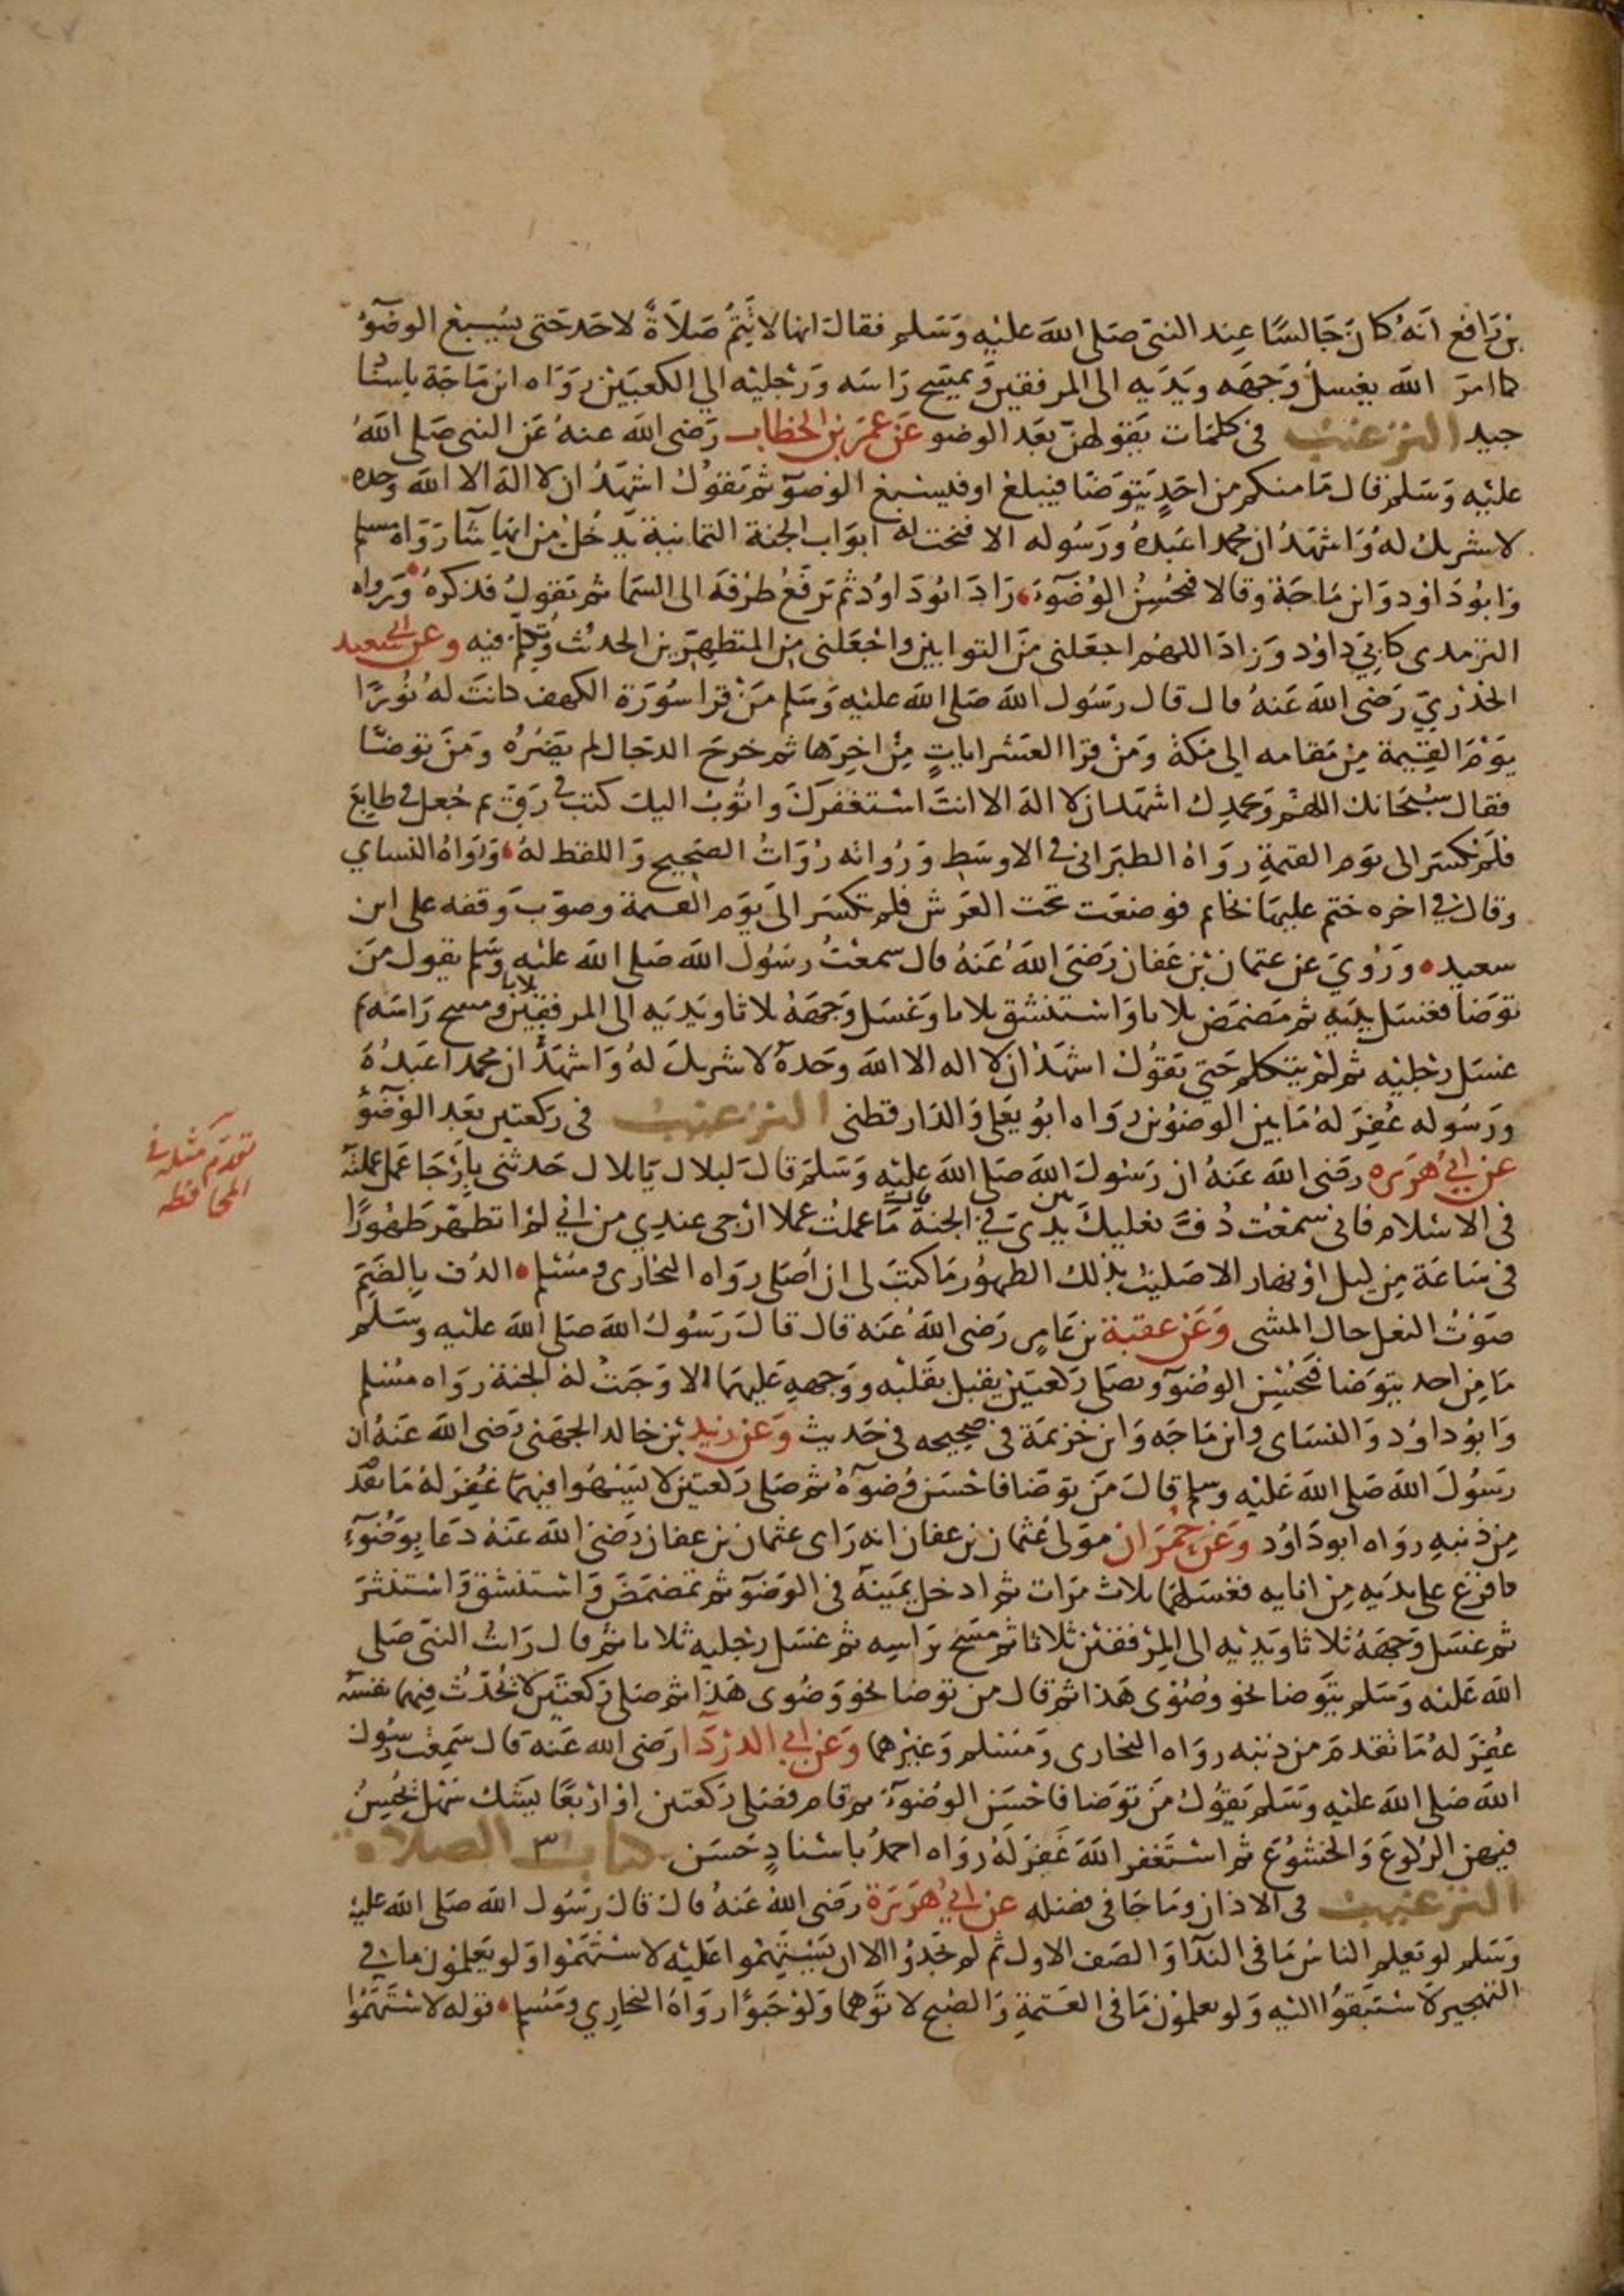 بن رافع انه كان جالسا عند النبى صلى الله عليه وسلم فقال انها لا تتم صلاة لاحد حتى يسبغ الوضوء
كما امر الله يغسل وجهه ويديه الى المرفقين ويمسح راسه ورجليه الى الكعبين رواه ابن ماجة باسناد
جيد الترغيب فى كلمات يقولهن بعد الوضو عن عمر بن الخطاب رضى الله عنه عن النبى صلى الله
عليه وسلم قال ما منكم من احد يتوضا فيبلغ او فيسبغ الوضو ثم يقول اشهد ان لا اله الا الله وحده
لا شريك له واشهد ان محمدا عبده ورسوله الا فتحت له ابواب الجنة الثمانية يدخل من ايها شا رواه مسلم
وابو داود وابن ماجة وقالا فيحسن الوضوء، زاد ابو داود ثم ترفع طرفه الى السما ثم تقول فذكره ورواه
الترمدى كابي داود وزاد اللهم اجعلنى من التوابين واجعلنى من المتطهرين الحديث وتكلم فيه وعن ابي سعيد
الخذري رضى الله عنه قال قال رسول الله صلى الله عليه وسلم من قرا سورة الكهف كانت له نورا
يوم القيمة من مقامه الى مكة ومن قرا العشر ايات من اخرها ثم خرج الدجال لم يضره ومن توضا
فقال سبحانك اللهم وبحمدك اشهد ان لا اله الا انت استغفرك واتوب اليك كتب فى رق ثم جعل فى طابع
فلم تكسر الى يوم القيمة رواه الطبرانى فى الاوسط ورواته رواة الصحيح واللفظ له، ورواه النساي
وقال في اخره ختم عليها بخاتم فوضعت تحت العرش فلم تكسر الى يوم القيمة وصوب وقفه على ابى
سعيد، وروي عن عثمان بن عفان رضى الله عنه قال سمعت رسول الله صلى الله عليه وسلم يقول من
توضا فغسل يديه ثم مضمض ثلاثا واستنشق ثلاثا وغسل وجهه ثلاثا ويديه الى المرفقين ثلاثا ومسح راسه ثم
غسل رجليه ثم لم يتكلم حتى يقول اشهد ان لا اله الا الله وحده لا شريك له واشهد ان محمدا عبده
ورسوله غفر له ما بين الوضوين رواه ابو يعلى والدارقطنى الترغيب فى ركعتين بعد الوضوء
عن ابي هريره رضى الله عنه ان رسول الله صلى الله عليه وسلم قال لبلال يا بلال حدثنى بارجا عمل عملته
فى الاسلام فانى سمعت دف نعليك بين يدي في الجنة قال ما عملت عملا ارجى عندي من اني لم اتطهر طهورا
فى ساعة من ليل او نهار الا صليت بذلك الطهور ما كتب لى ان اصلى رواه البخارى ومسلم، الدف بالضم
صوت النعل حال المشى وعن عقبة بن عامر رضى الله عنه قال قال رسول الله صلى الله عليه وسلم
ما من احد يتوضا فيحسن الوضو ويصلى ركعتين يقبل بقلبه ووجهه عليهما الا وجبت له الجنة رواه مسلم
وابو داود والنساى وابن ماجه وابن خزيمة فى صحيحه فى حديث وعن زيد بن خالد الجهنى رضى الله عنه ان
رسول الله صلى الله عليه وسلم قال من توضا فاحسن وضوءه ثم صلى ركعتين لا يسهوا فيهما غفر له ما تقدم
من ذنبه رواه ابو داود وعن حمران مولى عثمان بن عفان انه راى عثمان بن عفان رضى الله عنه دعا بوضوء
فافرغ على يديه من انايه فغسلهما ثلاث مرات ثم ادخل يمينه فى الوضو ثم تمضمض واستنشق واستنثر
ثم غسل وجهه ثلاثا ويديه الى المرفقين ثلاثا ثم مسح براسه ثم غسل رجليه ثلاثا ثم قال رايت النبى صلى
الله عليه وسلم يتوضا نحو وضوى هذا ثم قال من توضا نحو وضوى هذا ثم صلى ركعتين لا يحدث فيهما نفسه
غفر له ما تقدم من ذنبه رواه البخارى ومسلم وغيرهما وعن ابي الدردا رضى الله عنه قال سمعت رسول
الله صلى الله عليه وسلم يقول من توضا فاحسن الوضوء ثم قام فصلى ركعتين او اربعا يشك سهل يحسن
فيهن الركوع والخشوع ثم استغفر الله غفر له رواه احمد باسناد حسن كتاب الصلاة
الترغيب فى الاذان وما جا فى فضله عن ابي هريرة رضى الله عنه قال قال رسول الله صلى الله عليه
وسلم لو تعلم الناس ما فى الندا والصف الاول ثم لم يجدوا الا ان يستهموا عليه لاستهموا ولو يعلمون ما في
التهجير لاستبقوا اليه ولو يعلمون ما فى العتمة والصبح لاتوهما ولو حبوا رواه البخاري ومسلم، قوله لاستهموا
تقدم مثله فى
المحافظه